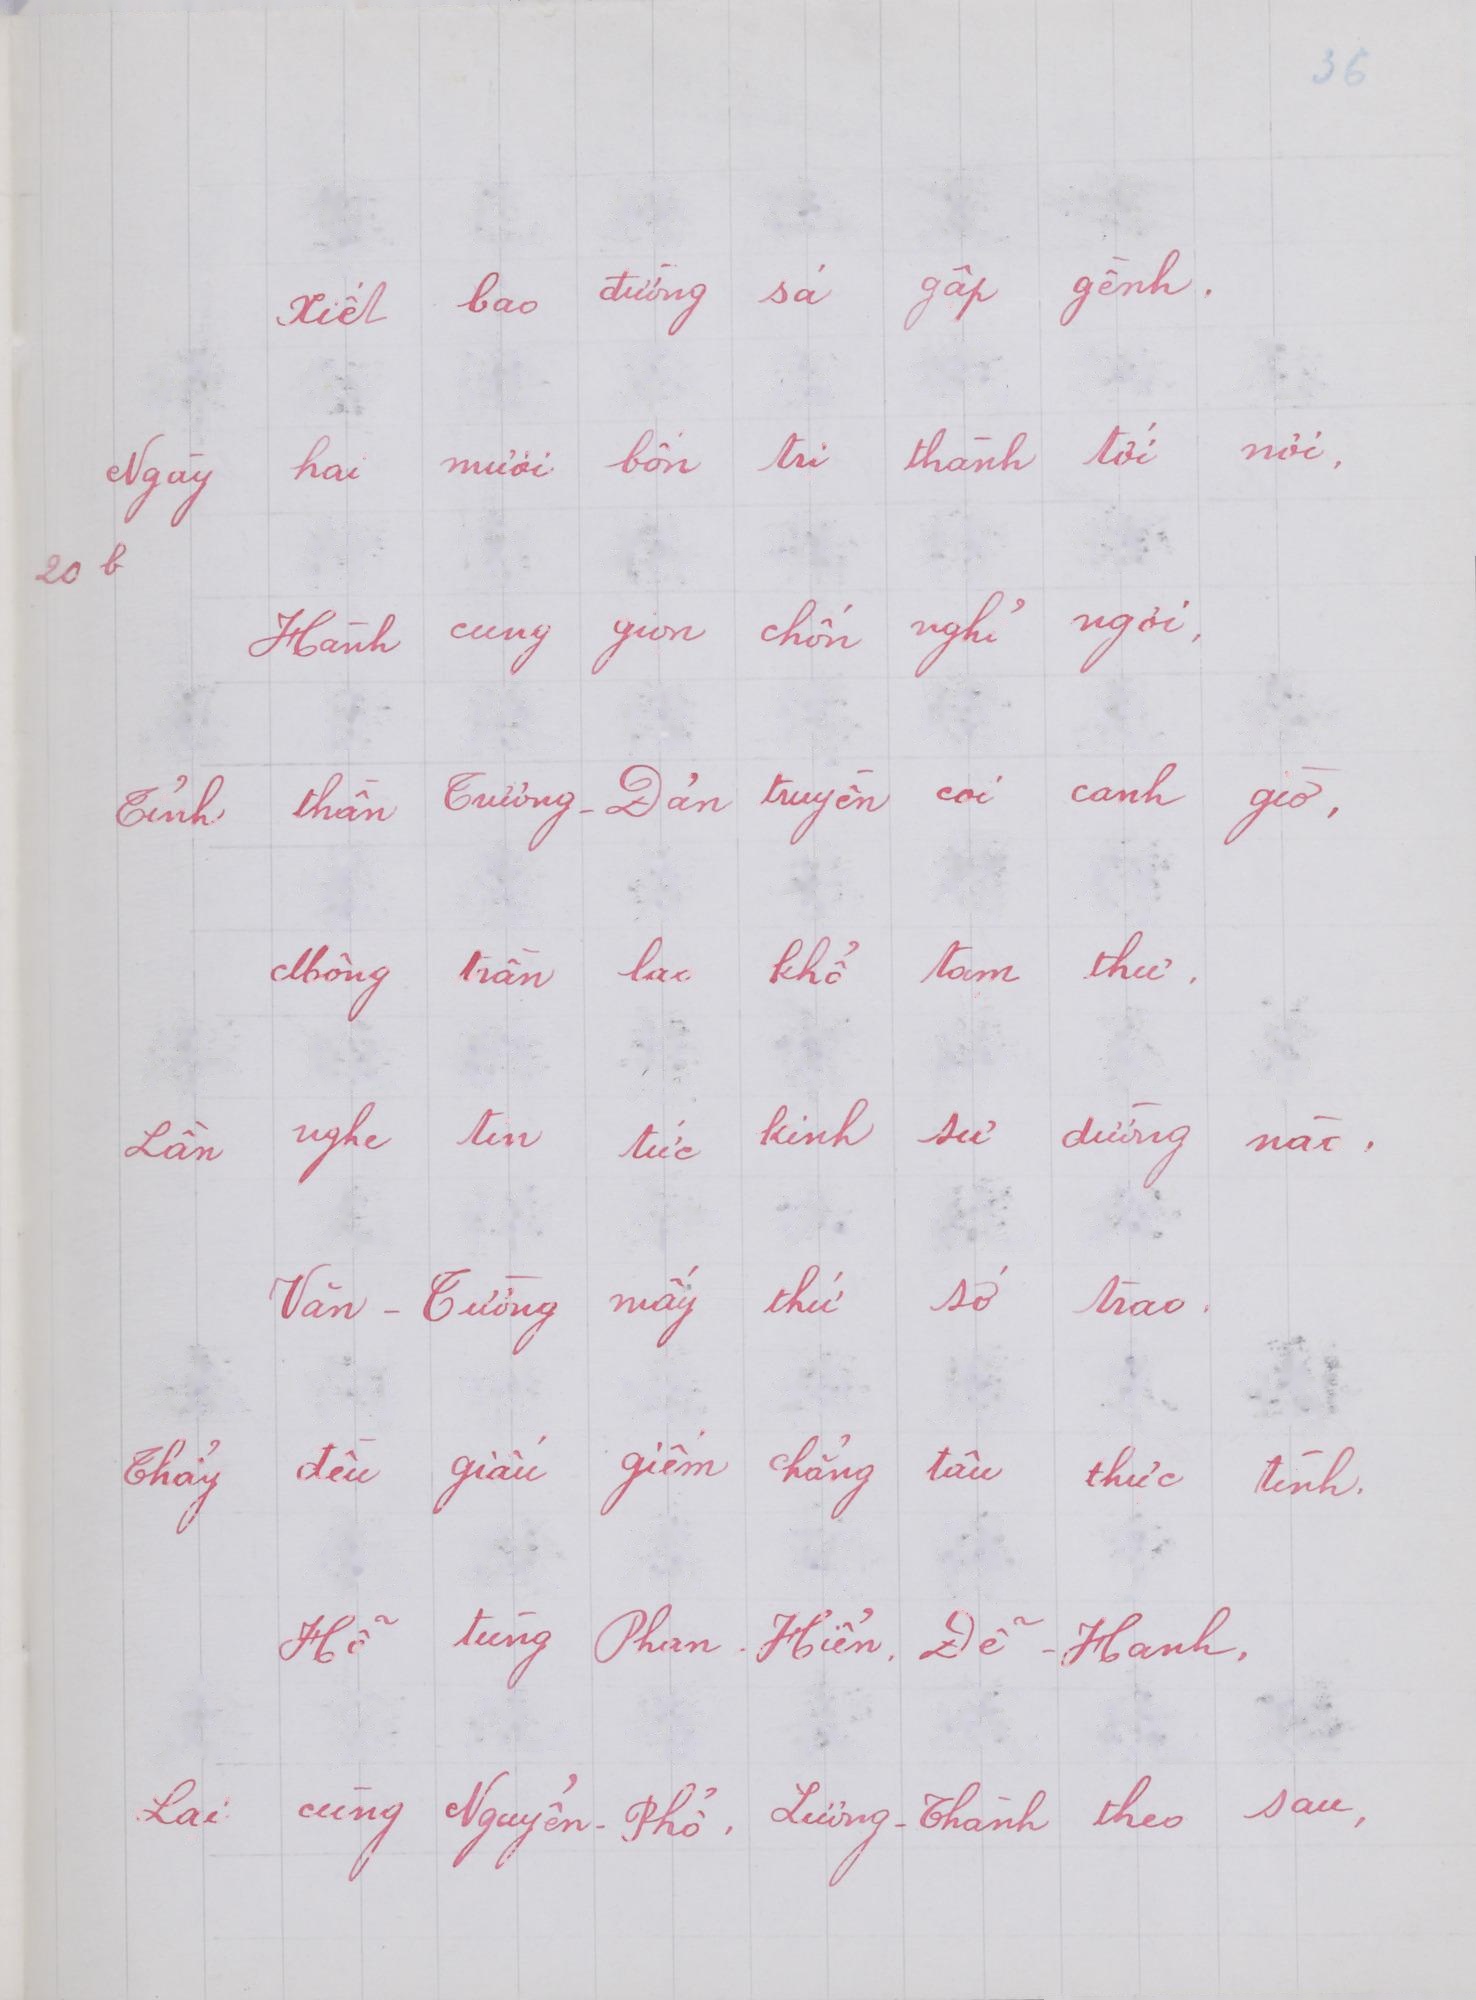 36
Xiết bao đường sá gập gềnh.
Ngày hai mươi bốn tri thành tới nơi,
20 b
Hành cung gion chốn nghỉ ngơi,
Tỉnh thần Trương-Đản truyền coi canh giờ,
Mông trần lao khổ tam thư.
Lần nghe tin tức kinh sư dường nào.
Văn-Tường mấy thứ sớ trao.
Thảy đều giàu giếm chẳng tâu thực tình.
Hỗ tùng Phan-Hiển, Đễ-Hanh,
Lại cùng Nguyễn-Phổ, Lương-Thành theo sau,